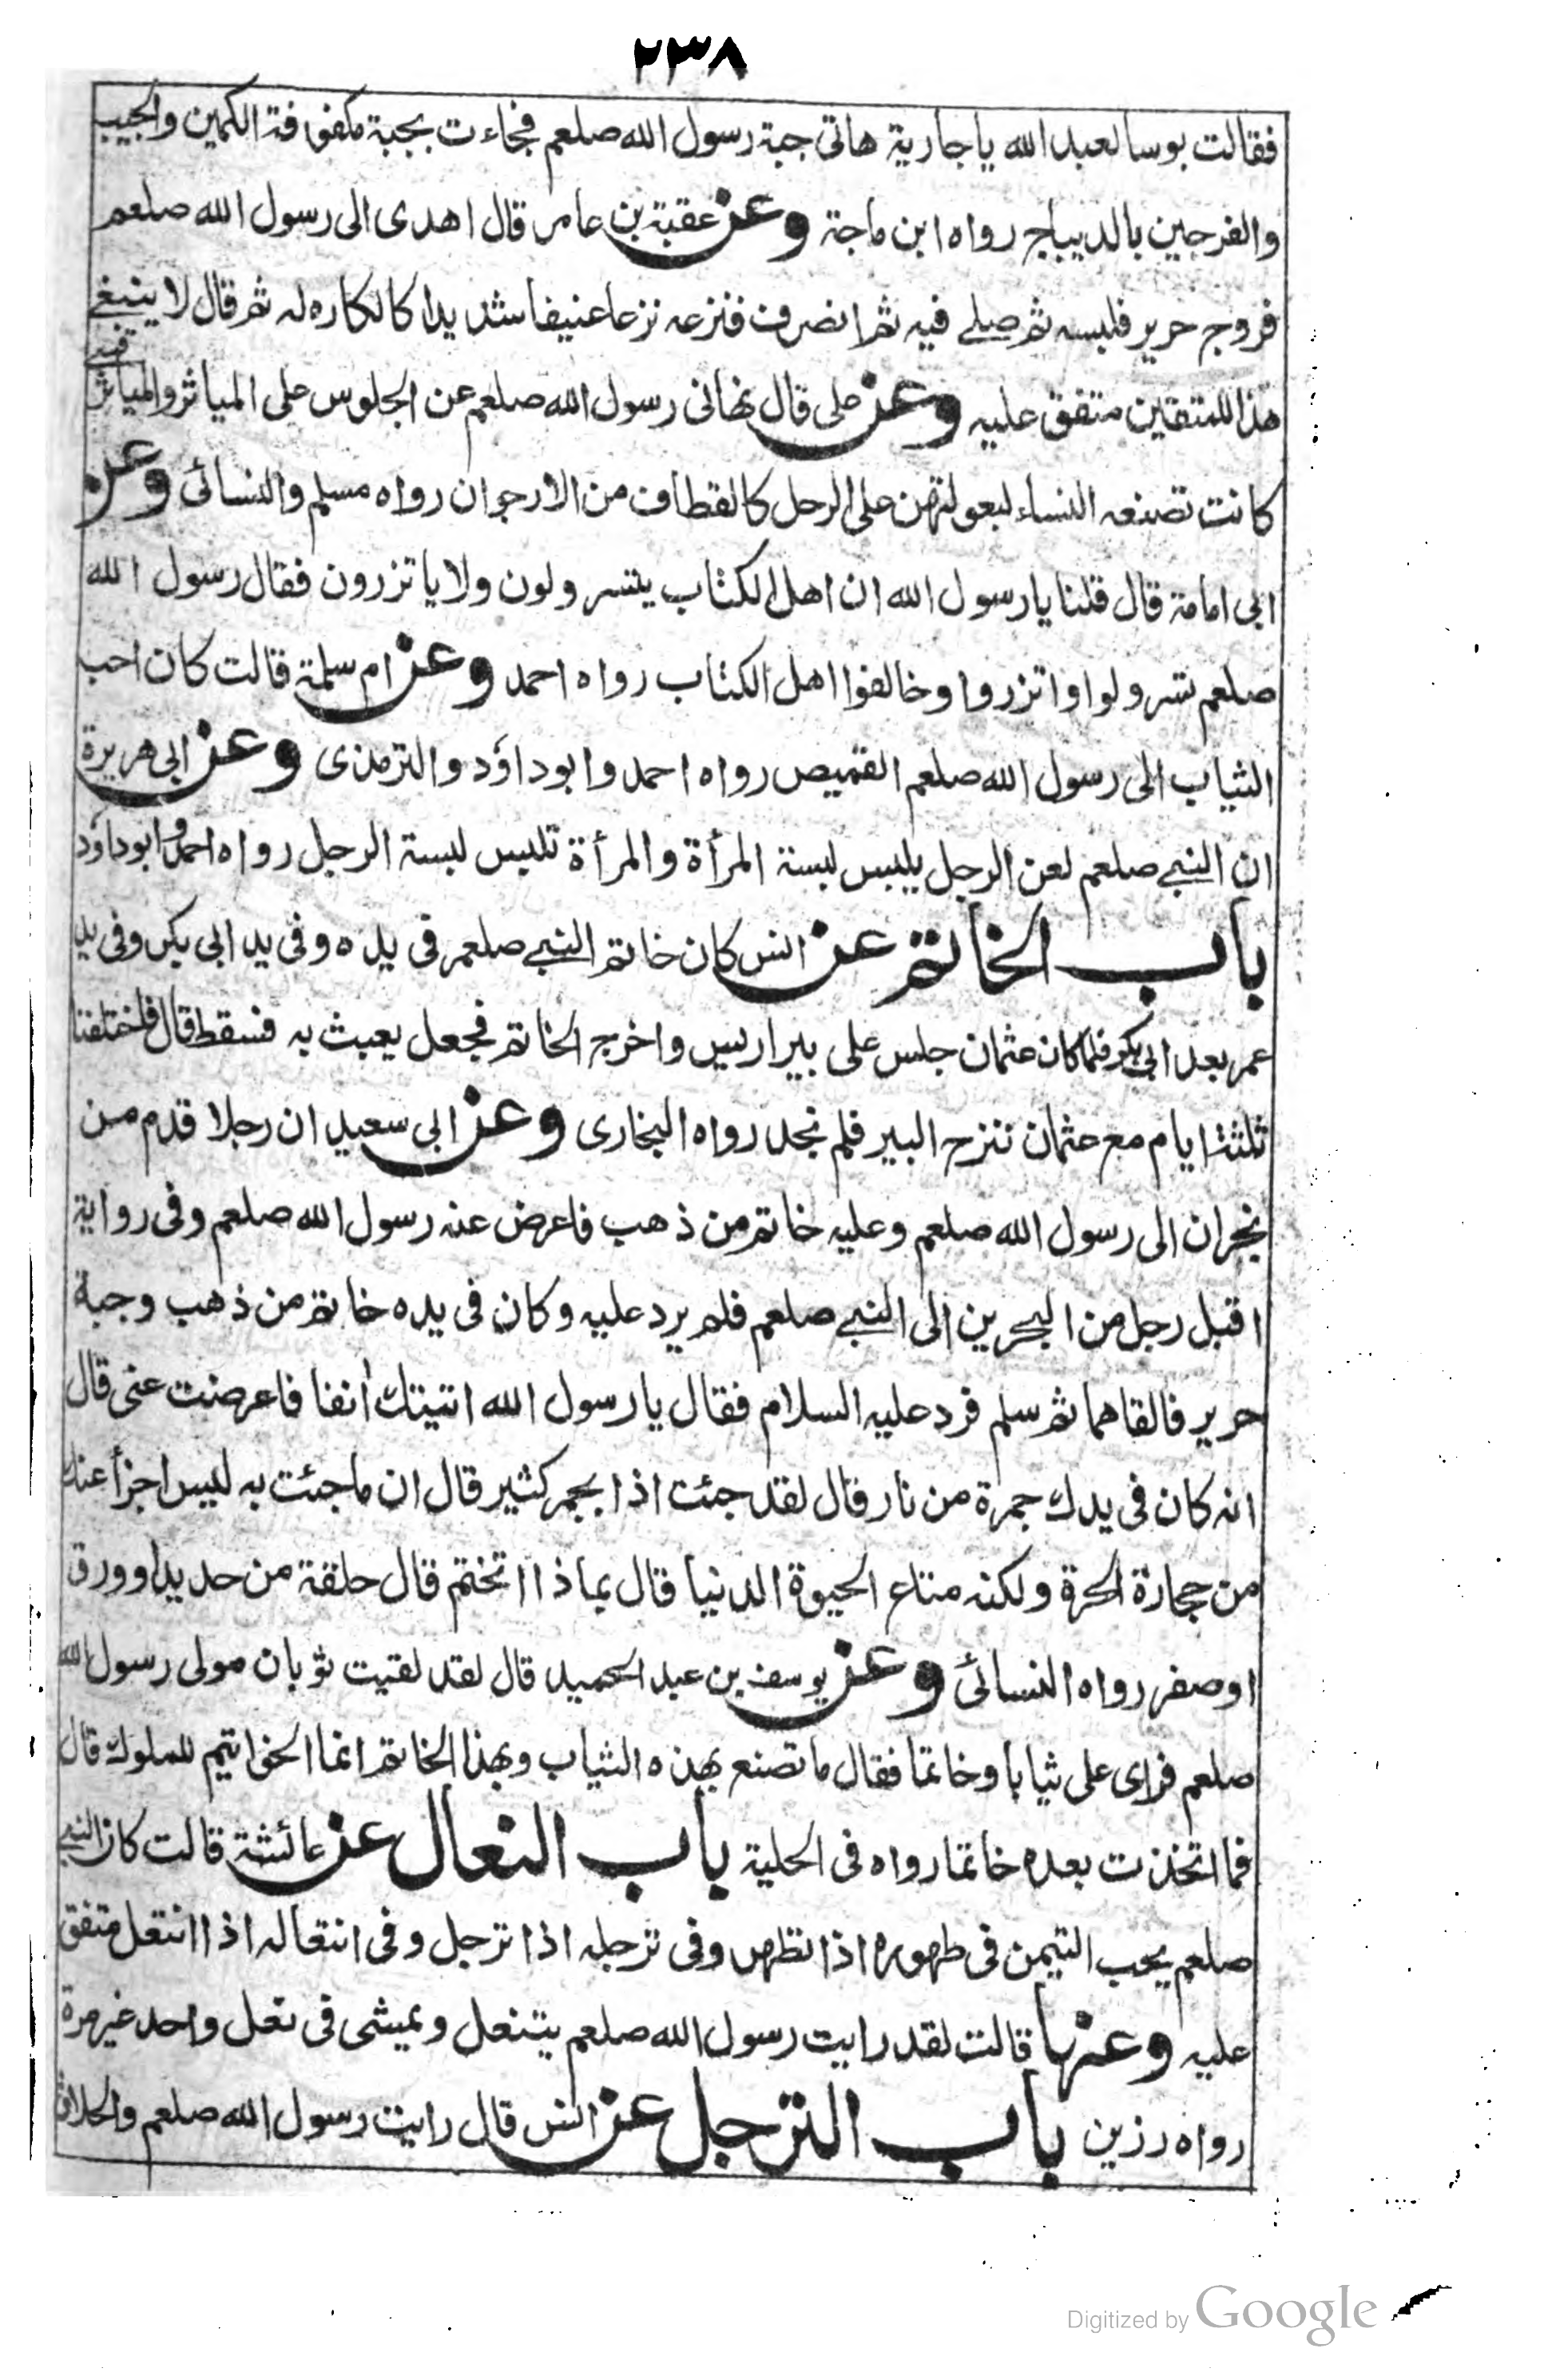 ٢٣٨
فقالت بوسا لعبد الله يا جارية هاتى جبة رسول الله صلعم فجاءت بجبة مكفوفة الكمين والجيب
والفرجين بالديباج رواه ابن ماجة وعن عقبة بن عامر قال اهدى الى رسول الله صلعم
فروج حرير فلبسه ثم صلے فيه ثم انصرف فنزعه نزعا عنيفا شديدا كالكاره له ثم قال لا ينبغے
هذا للمتقين متفق عليه وعن على قال نهانى رسول الله صلعم عن الجلوس على المياثر والمياثر قسے
كانت تصنعه النساء لبعولتهن على الرحل كالقطاف من الارجوان رواه مسلم والنسائى وعن
ابى امامة قال قلنا يا رسول الله ان اهل الكتاب يتسرولون ولا ياتزرون فقال رسول الله
صلعم تسرولوا واتزروا وخالفوا اهل الكتاب رواه احمد وعن ام سلمة قالت كان احب
الثياب الى رسول الله صلعم القميص رواه احمد وابوداؤد والترمذى وعن ابى هريرة
ان النبے صلعم لعن الرجل يلبس لبسة المرأة والمرأة تلبس لبسة الرجل رواه احمد وابوداؤد
باب الخاتم عن انس كان خاتم النبے صلعم فى يده وفى يد ابى بكر وفى يد
عمر بعد ابى بكر فلما كان عثمان جلس على بير اريس واخرج الخاتم فجعل يعبث به فسقط قال فاختلفنا
ثلثة ايام مع عثمان ننزح البير فلم نجد رواه البخارى وعن ابى سعيد ان رجلا قدم من
نجران الى رسول الله صلعم وعليه خاتم من ذهب فاعرض عنه رسول الله صلعم وفى رواية
اقبل رجل من البحرين الى النبے صلعم فلم يرد عليه وكان فى يده خاتم من ذهب وجبة
حرير فالقاهما ثم سلم فرد عليه السلام فقال يا رسول الله اتيتك أنفا فاعرضت عنى قال
انه كان فى يدك جمرة من نار قال لقد جئت اذا بجمر كثير قال ان ما جئت به ليس اجزأ عنك
من حجارة الحرة ولكنه متاع الحيوة الدنيا قال بماذا اتختم قال حلقة من حديد او ورق
او صفر رواه النسائى وعن يوسف بن عبد الحميد قال لقد لقيت ثوبان مولى رسول الله
صلعم فراى على ثيابا وخاتما فقال ما تصنع بهذه الثياب وبهذا الخاتم انما الخواتيم للملوك قال
فما اتخذت بعده خاتما رواه فى الحلية باب النعال عن عائشة قالت كان النبے
صلعم يحب التيمن فى طهوره اذا تطهر وفى ترجله اذا ترجل وفى انتعاله اذا انتعل متفق
عليه وعنها قالت لقد رايت رسول الله صلعم يتنعل ويمشى فى نعل واحد غير مرة
رواه رزين باب الترجل عن انس قال رايت رسول الله صلعم والحلاق
Digitized by Google